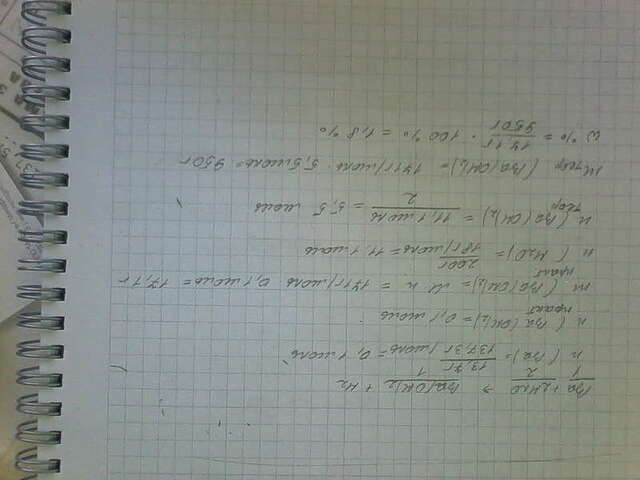 Ba + 2H2O → Ba(OH)2 + H2
1 2 1
n (Ba) = 13,7г / 137,3г/моль = 0,1 моль
n (Ba(OH)2) = 0,1 моль
практ
m (Ba(OH)2) = M · n = 171г/моль · 0,1 моль = 17,1 г
практ
n (H2O) = 200г / 18г/моль = 11,1 моль
n (Ba(OH)2) = 11,1 моль / 2 = 5,5 моль
теор
m теор (Ba(OH)2) = 171г/моль · 5,5 моль = 950г
ω% = 17,1г / 950г · 100% = 1,8%